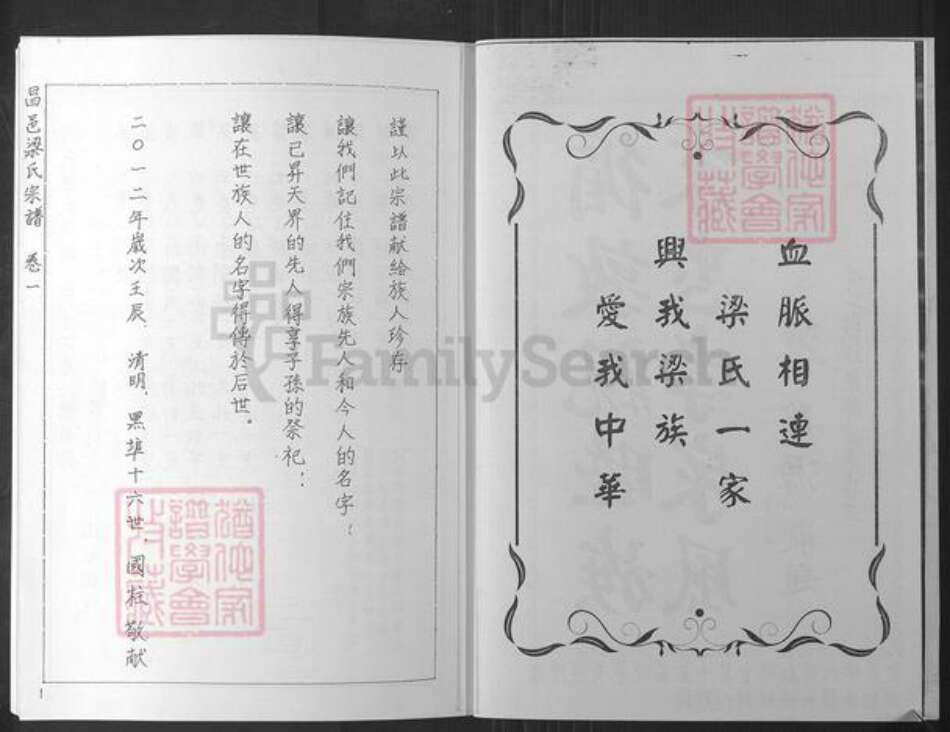 血脈相連
梁氏一家
興我梁族
愛我中華
謹以此宗譜献給族人珍存
讓我們記住我們宗族先人和今人的名字;
讓已昇天界的先人得享子孫的祭祀;
讓在世族人的名字得傳於后世。
二〇一二年歲次壬辰、清明、黑埠十六世、國柱敬献
昌邑梁氏宗譜 卷一
1
猶他家
譜學會
珍藏
猶他家
譜學會
珍藏
FamilySearch